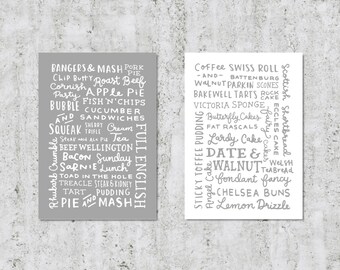 BANGERS & MASH PORK PIE
Chip Butty Roast Beef
Cornish Pasty Apple Pie
FISH 'N' CHIPS
BUBBLE AND SQUEAK
CUCUMBER SANDWICHES
SHERRY TRIFLE Cream Tea
BEEF WELLINGTON
Bacon Sarnie
Sunday Lunch
TOAD IN THE HOLE
TREACLE TART
STEAK & KIDNEY PUDDING
PIE AND MASH
Rhubarb Crumble
FULL ENGLISH
COFFEE AND WALNUT
SWISS ROLL
BATTENBURG
PARKIN SCONES
BAKEWELL TARTS
VICTORIA SPONGE
Butterfly Cakes
FAT RASCALS
Lardy Cake
DATE & WALNUT
WELSH
TEABREAD
fondant fancy
CHELSEA BUNS
Lemon Drizzle
STICKY TOFFEE PUDDING
Angel Cake
ECCLES CAKE
Scottish Shortbread